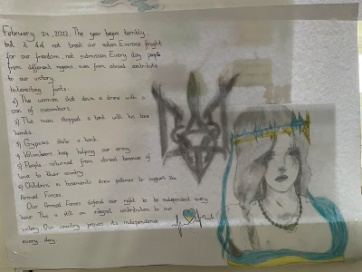 February 24, 2022. The year began terribly
but it did not break our nation. Everyone fought
for our freedom, not submission. Every day people
from different regions even from abroad contribute
to our victory.
Interesting facts:
1) The woman shot down a drone with a
can of cucumbers.
2) The man stopped a tank with his bare
hands.
3) Gypsies stole a tank.
4) Volunteers keep helping our army.
5) People returned from abroad because of
love to their country.
6) Children in basements drew patterns to support the
Armed Forces.
Our Armed Forces defend our right to be independent every
hour. This is still an integral contribution to our
victory. Our country proves its independence
every day.